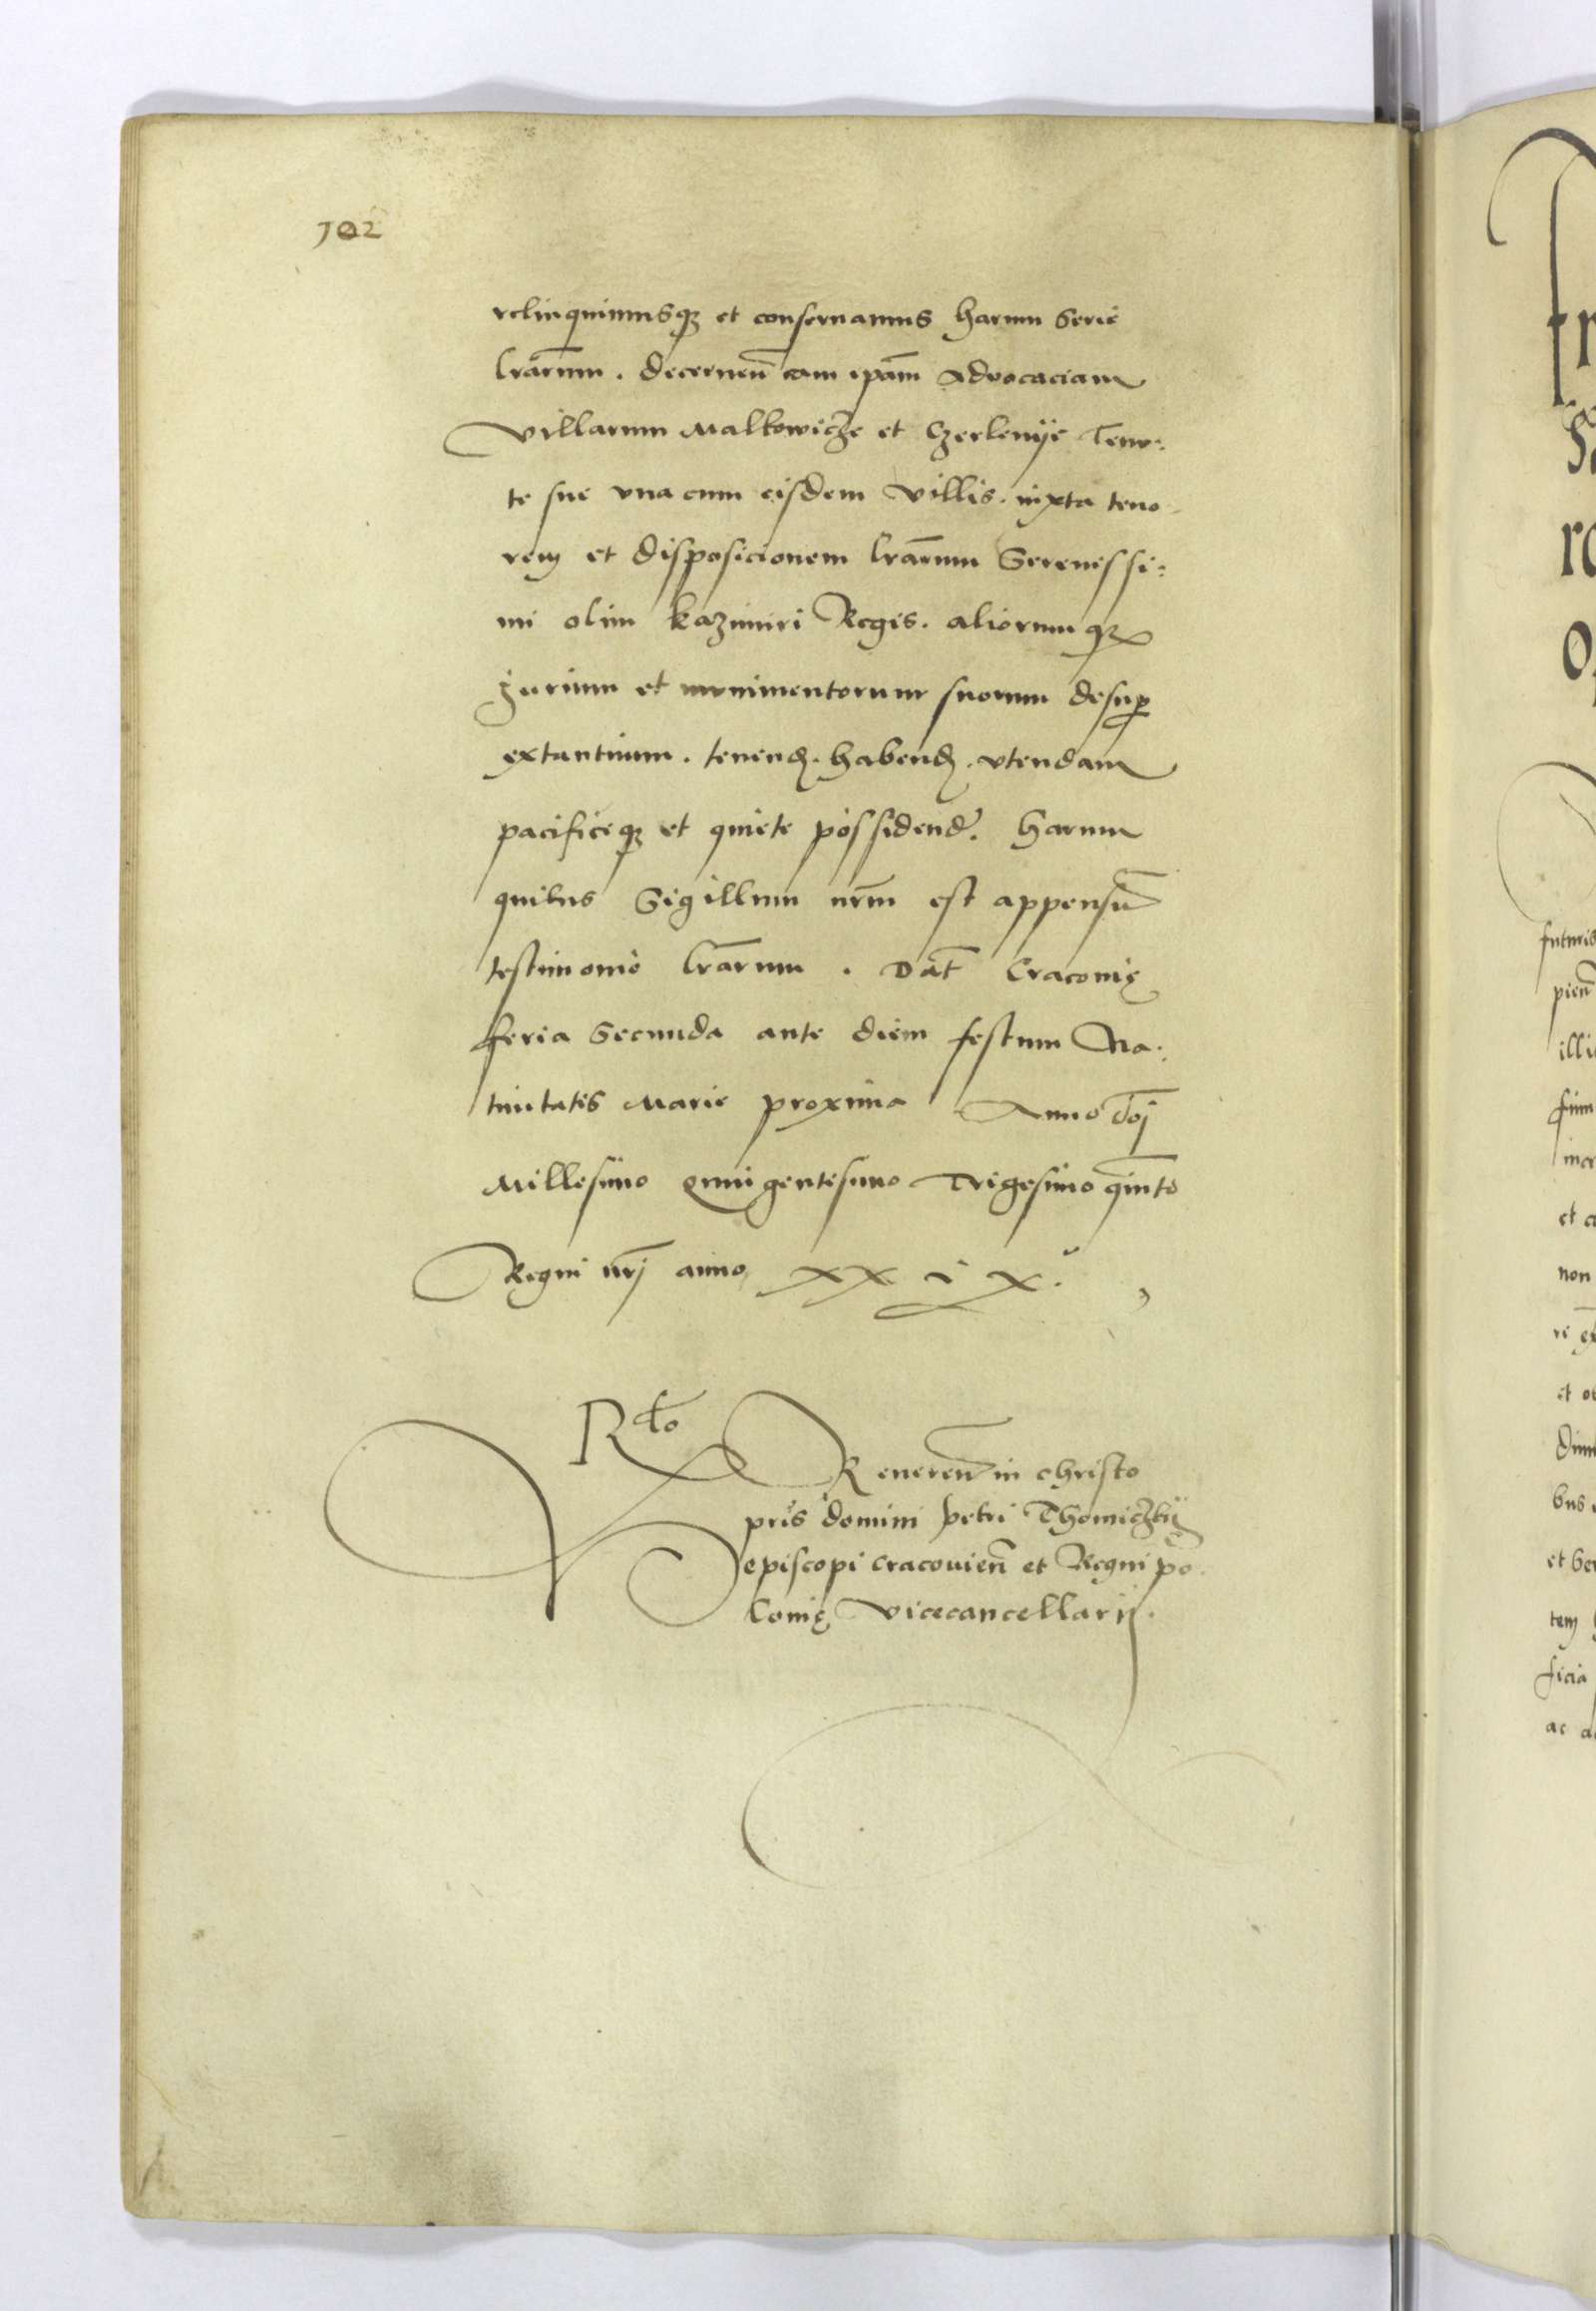 102
relinquimusqȝ et conseruamus harum serie
lrārum . decerneñ eam ipam̄ aduocaciam
villarum Malkowicze et Czerlenÿe
te sue vna cum eisdem villis . iuxta teno
rem et disposicionem lrārum Serenissi:
mi olim kazimiri Regis . aliorumqȝ
jurium et munimentorum suorum desup
extantium . tenend . habend . vtendam
pacificeqȝ et quiete possidend . harum
quibus Sigillum nrm̄ est appensū
testimonio lrārum . Dat̄ Cracouię
feria Secunda ante diem festum Na:
tiuitatis Marie proxima Anno dōj
Millesimo quingentesimo Trigesimo qinto
Regni nrj anno xx i x .
Rcto Reuereñ in christo
pris domini petri Thomiczkÿ
episcopi cracouieñ et Regni po
lonię vicecancellarij .